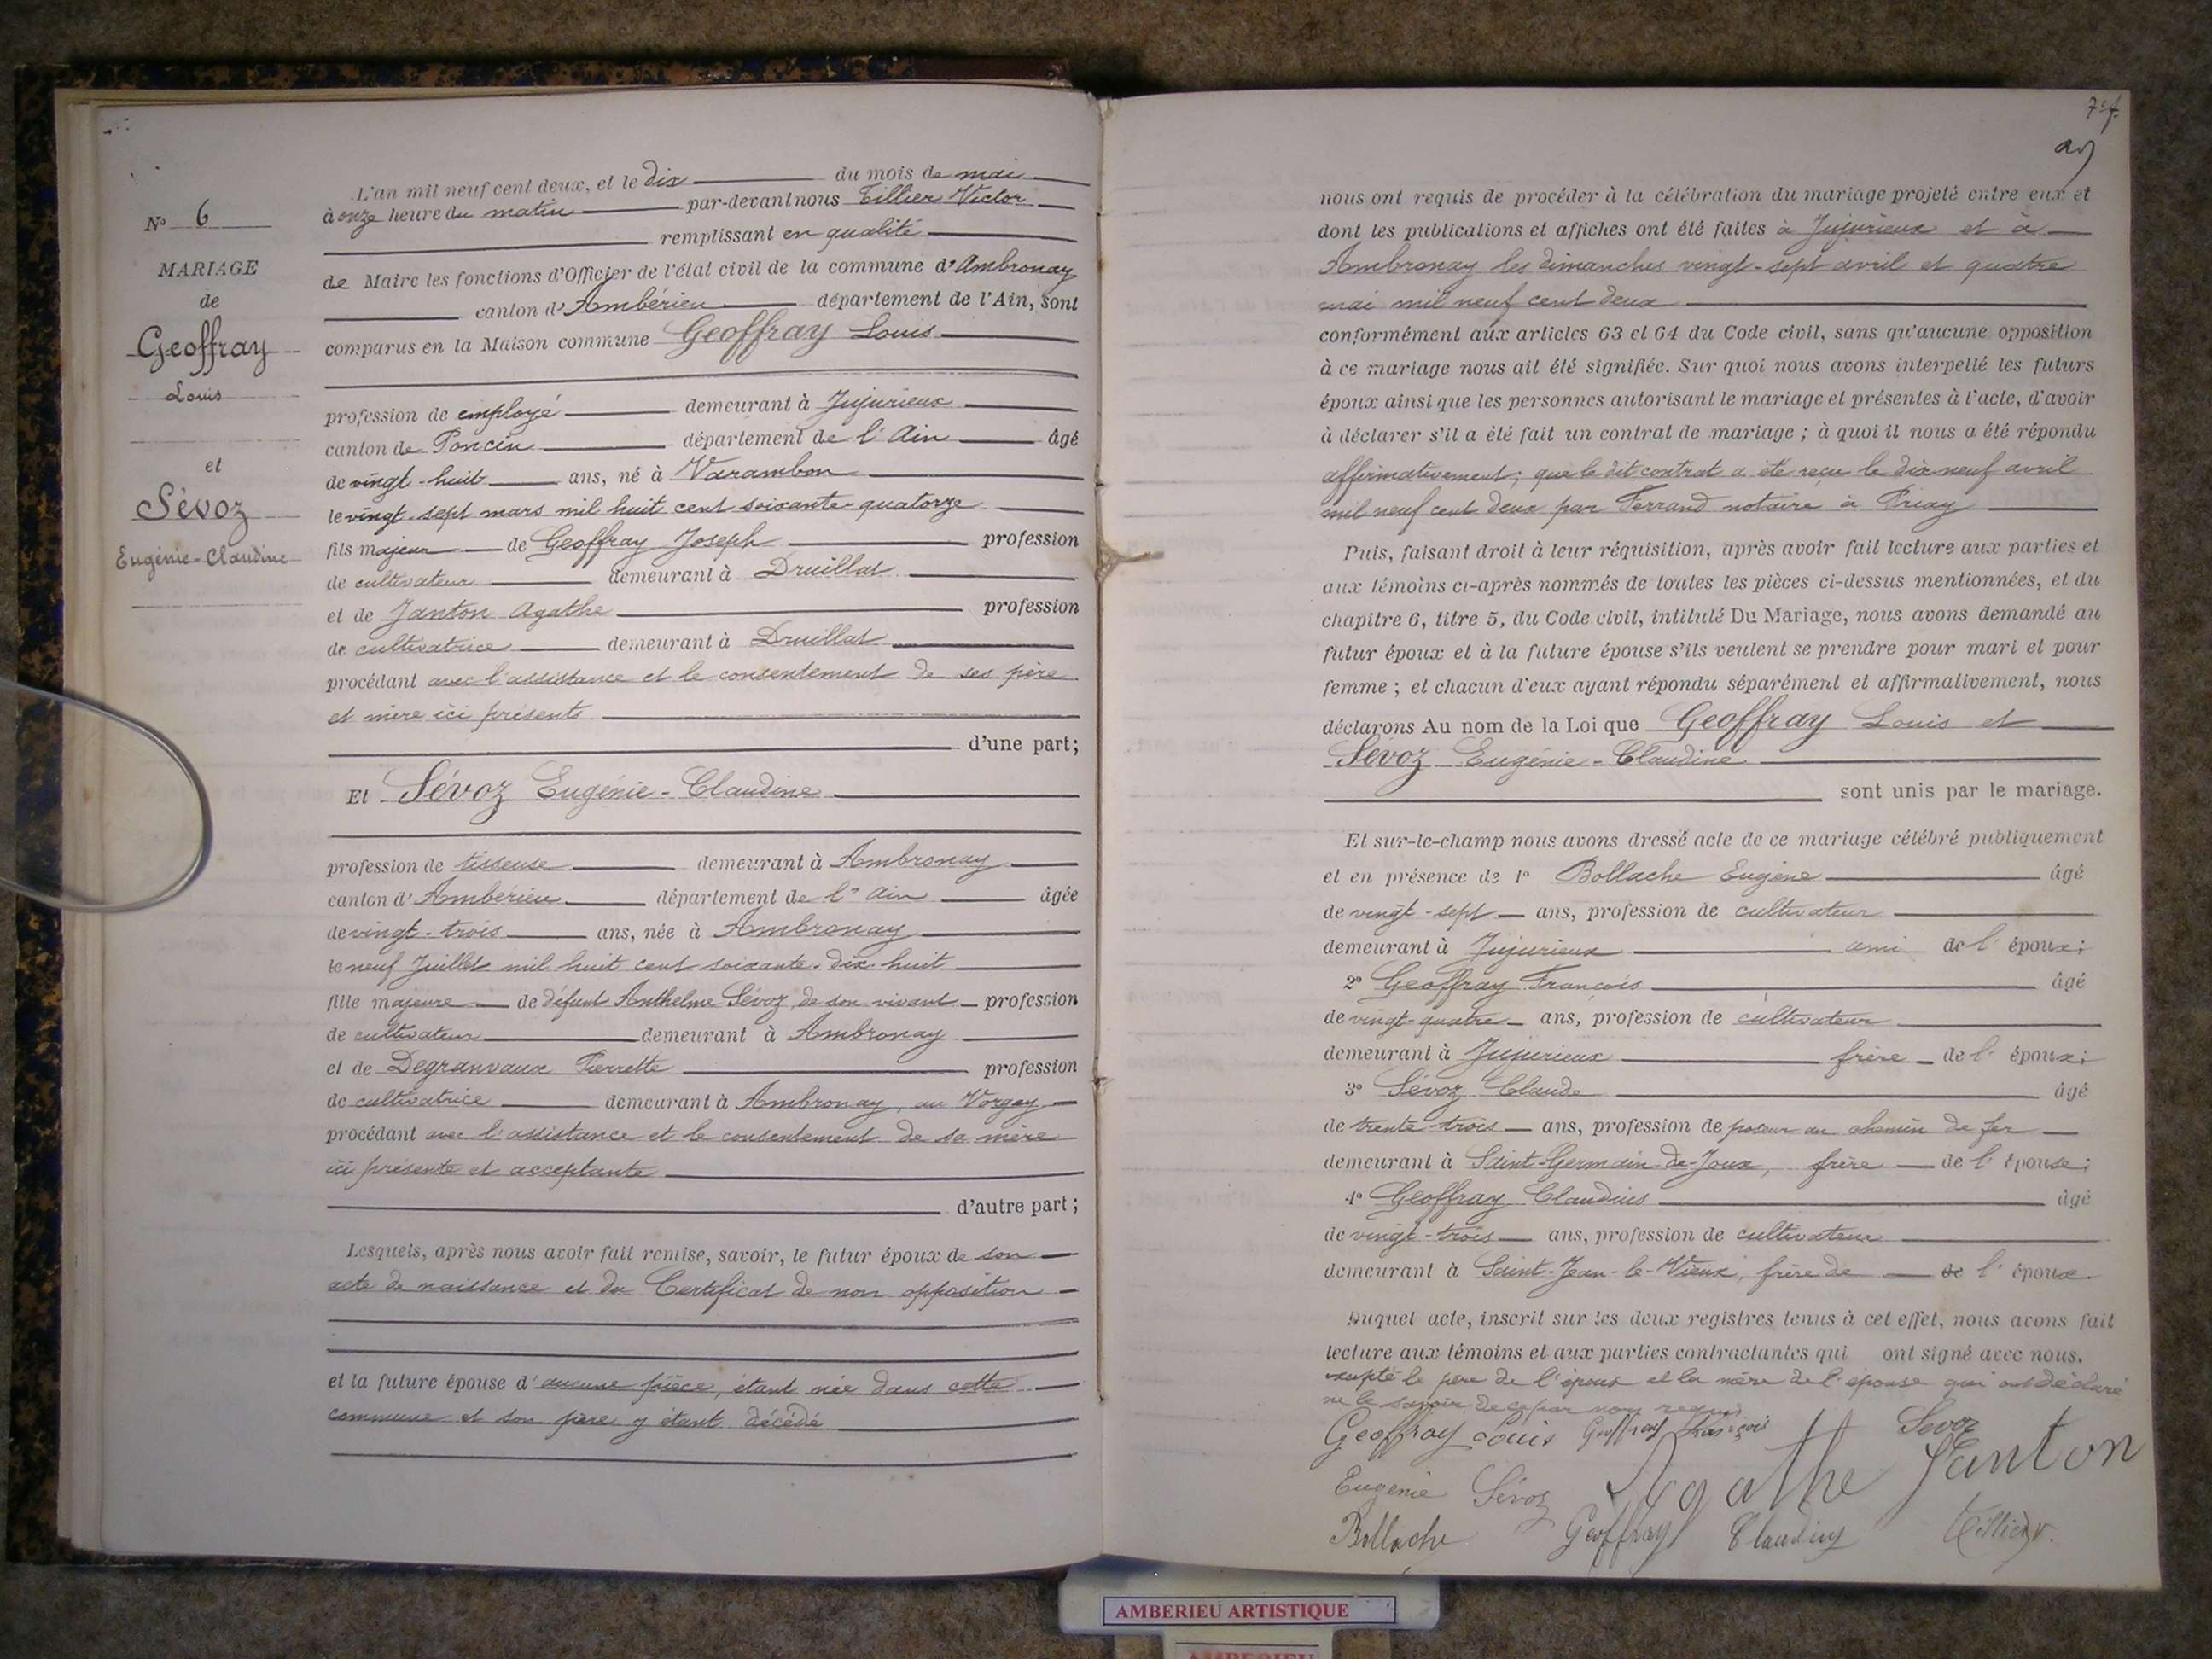 N° 6
MARIAGE
de
Geoffray
Louis
et
Sévoz
Eugénie-Claudine
L'an mil neuf cent deux, et le dix du mois de mai
à onze heure du matin par-devant nous Tillier Victor
remplissant en qualité
de Maire les fonctions d'Officier de l'état civil de la commune d'Ambronay
canton d'Ambérieu département de l'Ain, sont
comparus en la Maison commune Geoffray Louis
profession de employé demeurant à Jujurieux
canton de Poncin département de l'Ain âgé
de vingt-huit ans, né à Varambon
le vingt-sept mars mil huit cent soixante-quatorze
fils majeur de Geoffray Joseph profession
de cultivateur demeurant à Druillat
et de Janton Agathe profession
de cultivatrice demeurant à Druillat
procédant avec l'assistance et le consentement de ses père
et mère ici présents
d'une part;
Et Sévoz Eugénie-Claudine
profession de tisseuse demeurant à Ambronay
canton d'Ambérieu département de l'Ain âgée
de vingt-trois ans, née à Ambronay
le neuf Juillet mil huit cent soixante-dix-huit
fille majeure de défunt Anthelme Sévoz, de son vivant profession
de cultivateur demeurant à Ambronay
et de Degranvaux Pierrette profession
de cultivatrice demeurant à Ambronay, au Vorgey
procédant avec l'assistance et le consentement de sa mère
ici présente et acceptante
d'autre part;
Lesquels, après nous avoir fait remise, savoir, le futur époux de son
acte de naissance et du Certificat de non opposition
et la future épouse d'aucune pièce, étant née dans cette
commune et son père y étant décédé
7e f.
nous ont requis de procéder à la célébration du mariage projeté entre eux et
dont les publications et affiches ont été faites à Jujurieux et à
Ambronay les dimanches vingt-sept avril et quatre
mai mil neuf cent deux
conformément aux articles 63 et 64 du Code civil, sans qu'aucune opposition
à ce mariage nous ait été signifiée. Sur quoi nous avons interpellé les futurs
époux ainsi que les personnes autorisant le mariage et présentes à l'acte, d'avoir
à déclarer s'il a été fait un contrat de mariage; à quoi il nous a été répondu
affirmativement; que le dit contrat a été reçu le dix neuf avril
mil neuf cent deux par Ferrand notaire à Priay
Puis, faisant droit à leur réquisition, après avoir fait lecture aux parties et
aux témoins ci-après nommés de toutes les pièces ci-dessus mentionnées, et du
chapitre 6, titre 5, du Code civil, intitulé Du Mariage, nous avons demandé au
futur époux et à la future épouse s'ils veulent se prendre pour mari et pour
femme; et chacun d'eux ayant répondu séparément et affirmativement, nous
déclarons Au nom de la Loi que Geoffray Louis et
Sévoz Eugénie-Claudine
sont unis par le mariage.
Et sur-le-champ nous avons dressé acte de ce mariage célébré publiquement
et en présence de 1° Bollache Eugène âgé
de vingt-sept ans, profession de cultivateur
demeurant à Jujurieux ami de l'époux;
2° Geoffray François âgé
de vingt-quatre ans, profession de cultivateur
demeurant à Jujurieux frère de l'époux;
3° Sévoz Claude âgé
de trente-trois ans, profession de poseur au chemin de fer
demeurant à Saint-Germain-de-Joux, frère de l'épouse;
4° Geoffray Claudius âgé
de vingt-trois ans, profession de cultivateur
demeurant à Saint-Jean-le-Vieux, frère de de l'époux.
Duquel acte, inscrit sur les deux registres tenus à cet effet, nous avons fait
lecture aux témoins et aux parties contractantes qui ont signé avec nous.
excepté le père de l'époux et la mère de l'épouse qui ont déclaré
ne le savoir de ce par nous requis
Geoffray Louis Geoffray François Sevoz
Eugénie Sévoz Agathe Janton
Bollache Geoffray Claudius Tillier V.
AMBERIEU ARTISTIQUE
AMBERIEU